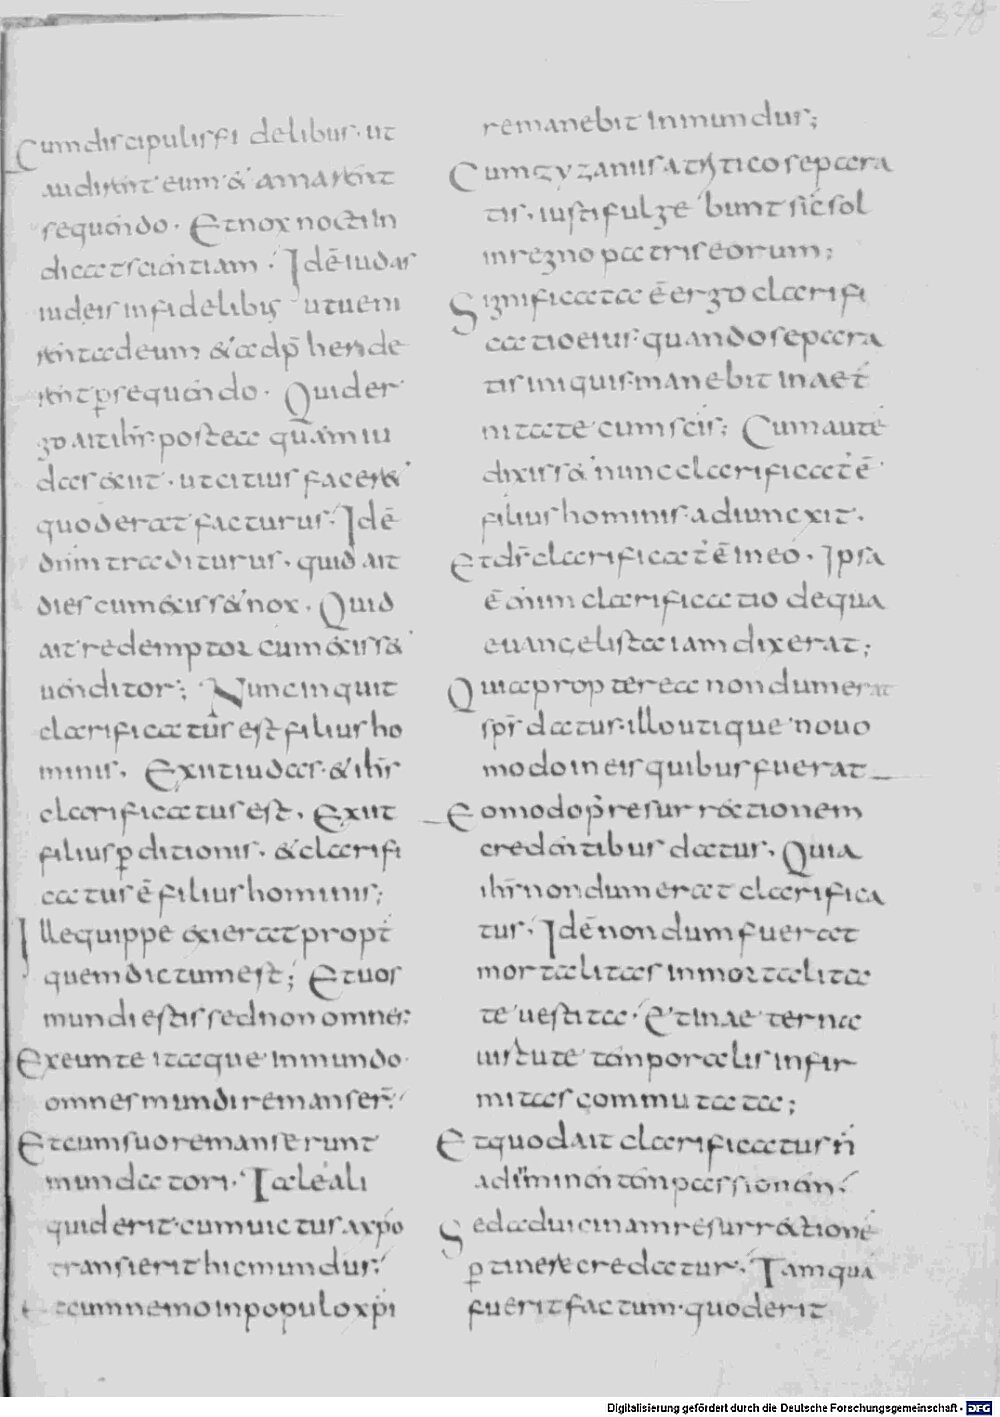 338
Cum discipulis fidelibus. ut
audirent eum & amarent
sequendo. Et nox nocti in
dicat scientiam. Idē iudas
iudeis infidelibus ut ueni
rent ad eum & adp̄henderent
rent ꝑsequendo. Quid er
go ait ihs̄ postea quam iu
das exiit. ut citius faceret
quod erat facturus. Idē
dn̄m traditurus. quid ait
dies cum exiss& nox. Quid
ait redemptor cum exiss&
uenditor; Nunc inquit
clarificatus est filius ho
minis. Exiit iudas. & ihs̄
clarificatus est. Exiit
filius ꝑditionis. & clarifi
catus ē filius hominis;
Ille quippe exierat propt̄
quem dictum est; Et uos
mundi estis sed non omnes.
Exeunte itaque inmundo.
omnes mundi remanser̄.
Et cum suo remanserunt
mundatori. Tale ali
quid erit cum uictus a xp̄o
transierit hic mundus.
Et cum nemo in populo xp̄i
remanebit inmundus;
Cum zyzaniis a tritico sepcra
tis. iusti fulgebunt sic sol
in regno patris eorum;
Significata ē ergo clarifi
catio eius. quando sepcra
tis iniquis. manebit in aet̄
nitate cum sc̄is; Cum autē
dixiss& nunc clarificat' ē
filius hominis. adiuncxit.
Et ds̄ clarificat' ē in eo. Ipsa
ē enim clarificatio de qua
euangelista iam dixerat;
Quia propterea nondum erat
sps̄ datus. illo utique nouo
modo in eis quibus fuerat
Eo modo p' resurrectionem
credentibus datus. Quia
ihs̄ nondum erat clarifica
tus. Idē nondum fuerat
mortalitas inmortalita
te uestita. Et in aeterna
uirtute temporalis infir
mitas commutata;
Et quod ait clarificatus n̄
ad hominem tempassionem.
Sed ad uicinam resurrectionē
ꝑtinere credatur. Tamquā
fuerit factum. quod erit
Digitalisierung gefördert durch die Deutsche Forschungsgemeinschaft - DFG